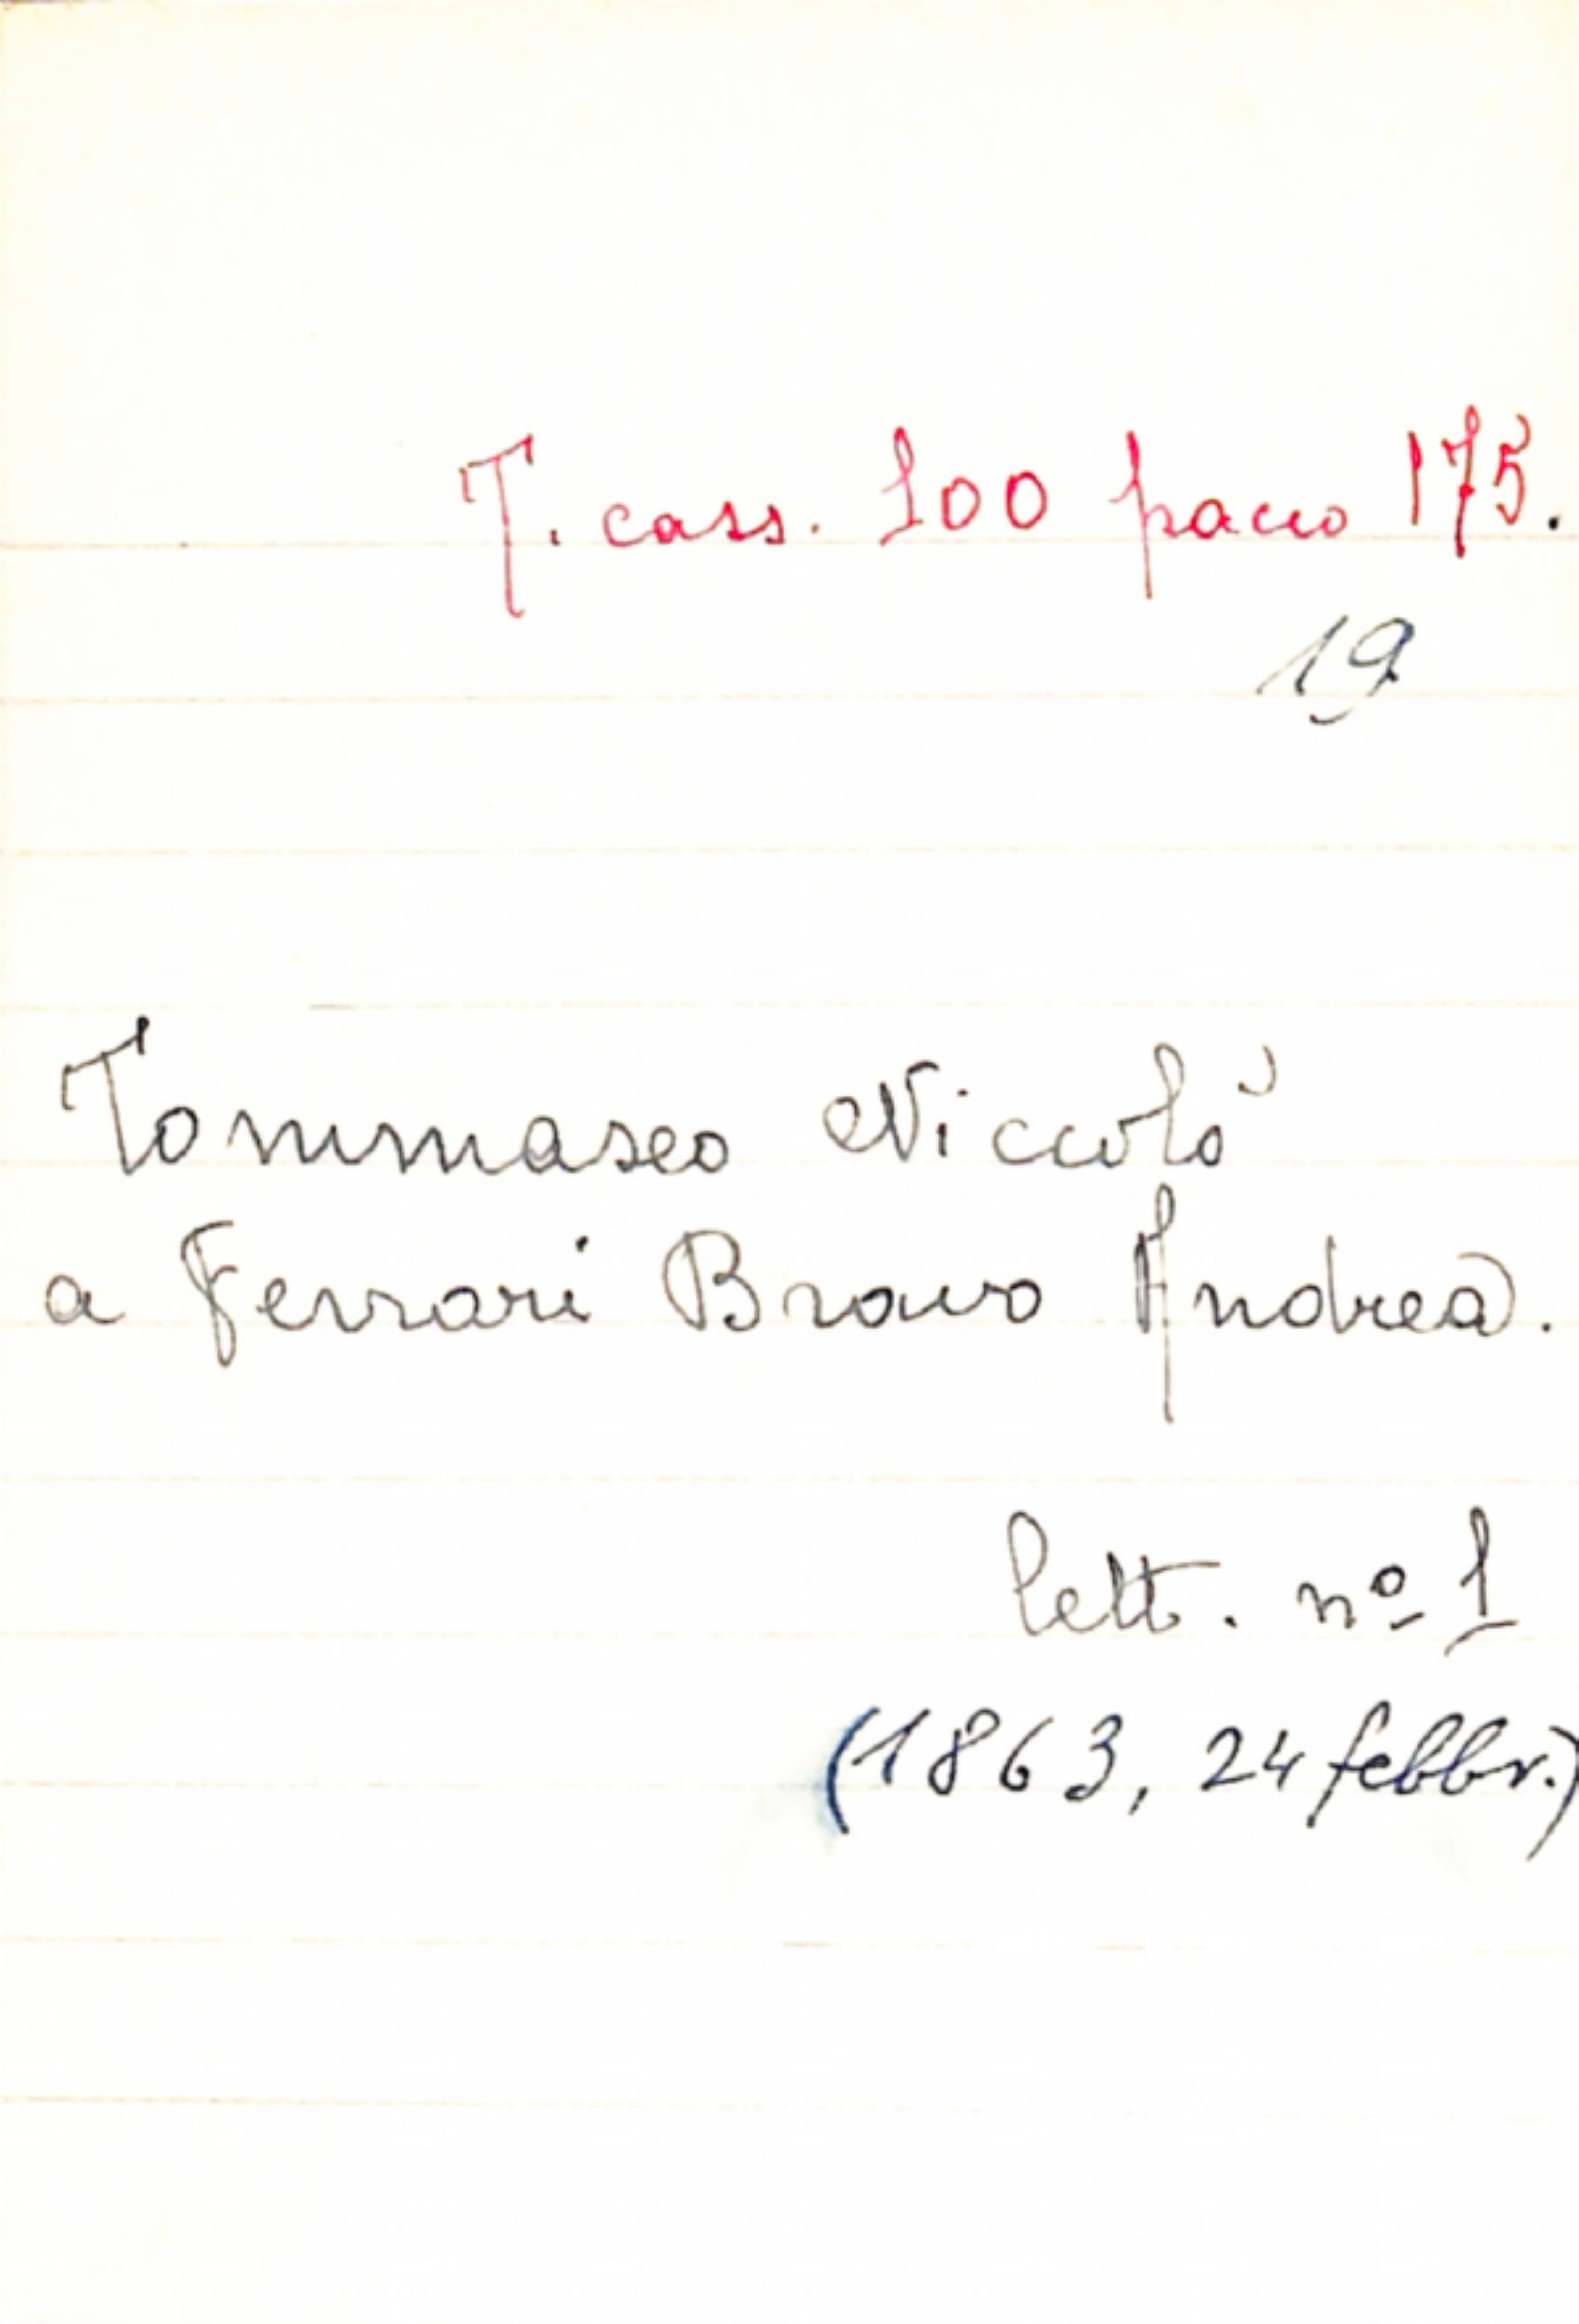 T. cass. 100 pacco 175.
19
Tommaseo Niccolò
a Ferrari Bravo Andrea.
lett. nº 1
(1863, 24 febbr.)